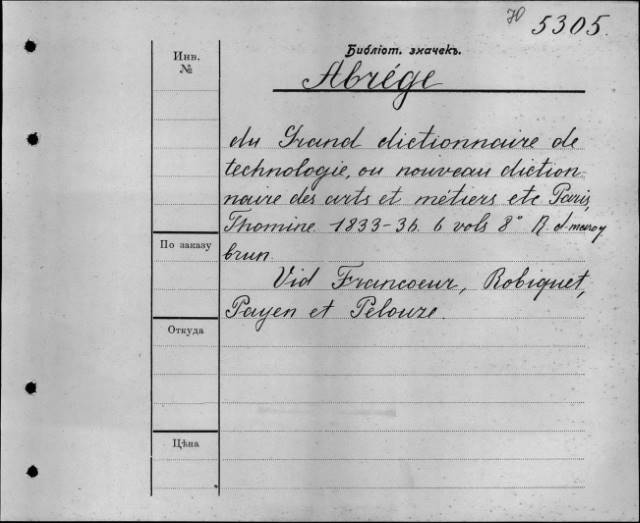 5305.
Библіот. значекъ.
Инв.
№
Abrége
du Grand dictionnaire de
technologie, ou nouveau diction
naire des arts et métiers etc Paris,
Thomine 1833-36. 6 vols 8°
brun.
По заказу
Vid Francoeur, Robiquet,
Payen et Pelouze.
Откуда
Цѣна